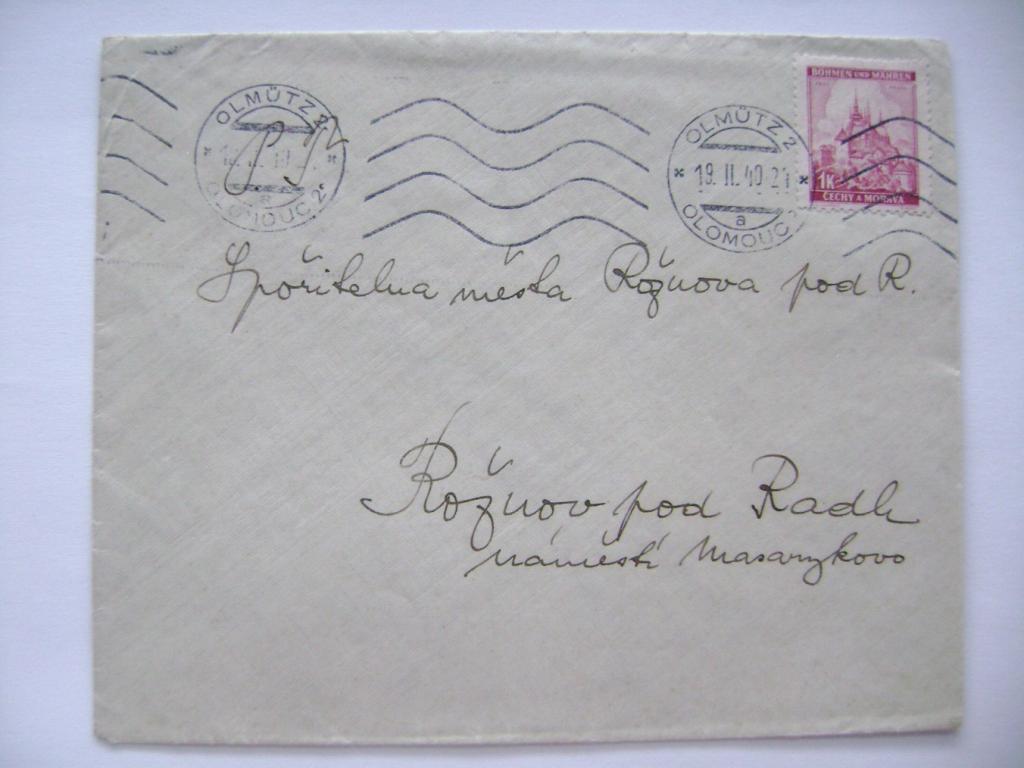 OLMÜTZ 2
OLOMOUC 2
OLMÜTZ 2
19. II. 40-21
a
OLOMOUC 2
BÖHMEN UND MÄHREN
1K
ČECHY A MORAVA
Spořitelna města Rožnova pod R.
Rožnov pod Radh
náměstí Masarykovo